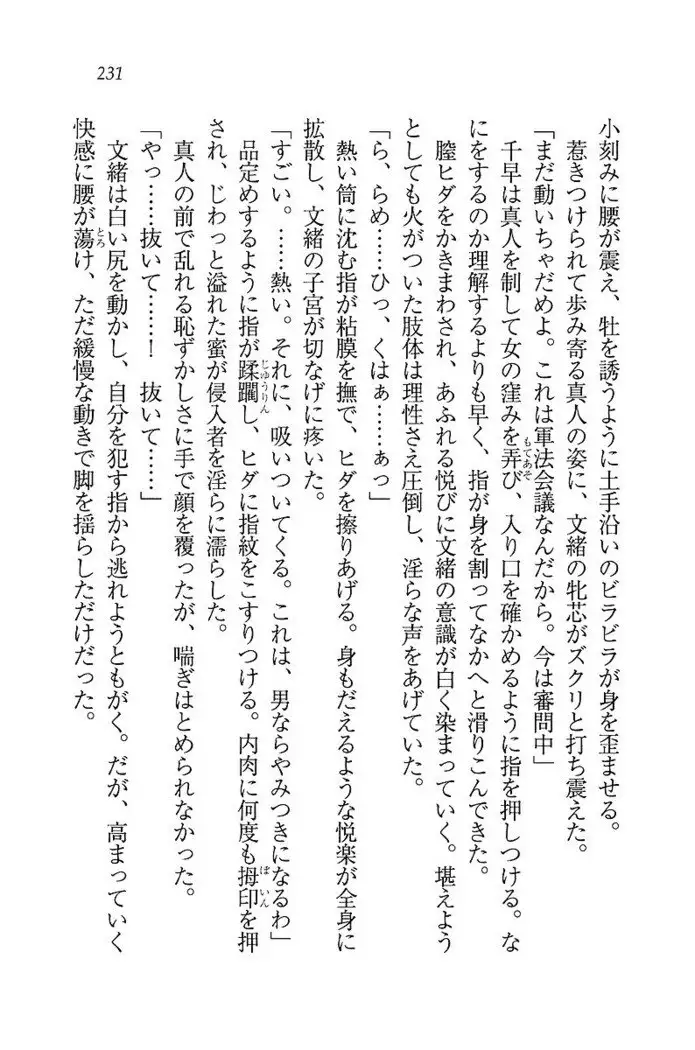 231
小刻みに腰が震え、牡を誘うように土手沿いのビラビラが身を歪ませる。
惹きつけられて歩み寄る真人の姿に、文緒の牝芯がズクリと打ち震えた。
「まだ動いちゃだめよ。これは軍法会議なんだから。今は審問中」
千早は真人を制して女の窪みを弄び、入り口を確かめるように指を押しつける。な
にをするのか理解するよりも早く、指が身を割ってなかへと滑りこんできた。
膣ヒダをかきまわされ、あふれる悦びに文緒の意識が白く染まっていく。堪えよう
としても火がついた肢体は理性さえ圧倒し、淫らな声をあげていた。
「ら、らめ……ひっ、くはぁ……ぁっ」
熱い筒に沈む指が粘膜を撫で、ヒダを擦りあげる。身もだえるような悦楽が全身に
拡散し、文緒の子宮が切なげに疼いた。
「すごい。……熱い。それに、吸いついてくる。これは、男ならやみつきになるわ」
品定めするように指が蹂躙し、ヒダに指紋をこすりつける。内肉に何度も拇印を押
され、じわっと溢れた蜜が侵入者を淫らに濡らした。
真人の前で乱れる恥ずかしさに手で顔を覆ったが、喘ぎはとめられなかった。
「やっ……抜いて……！　抜いて……」
文緒は白い尻を動かし、自分を犯す指から逃れようともがく。だが、高まっていく
快感に腰が蕩け、ただ緩慢な動きで脚を揺らしただけだった。